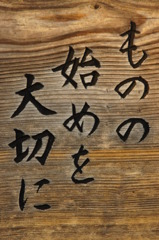 ものの
始めを
大切に